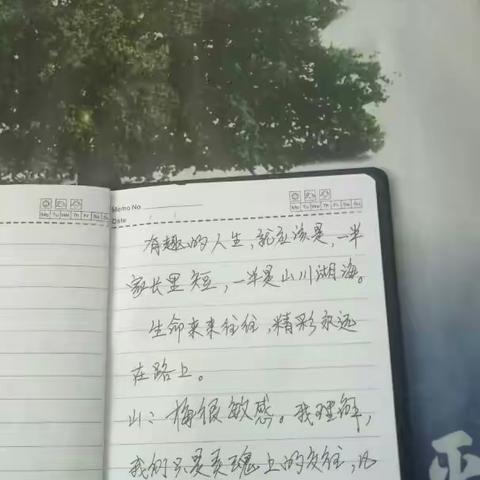 Memo No.
Date / /
Mo Tu We Th Fr Sa Su
有趣的人生,就应该是,一半
家长里短,一半是山川湖海。
生命来来往往,精彩永远
在路上。
山:梅很敏感。我理解,
我们只是灵魂上的交往,凡